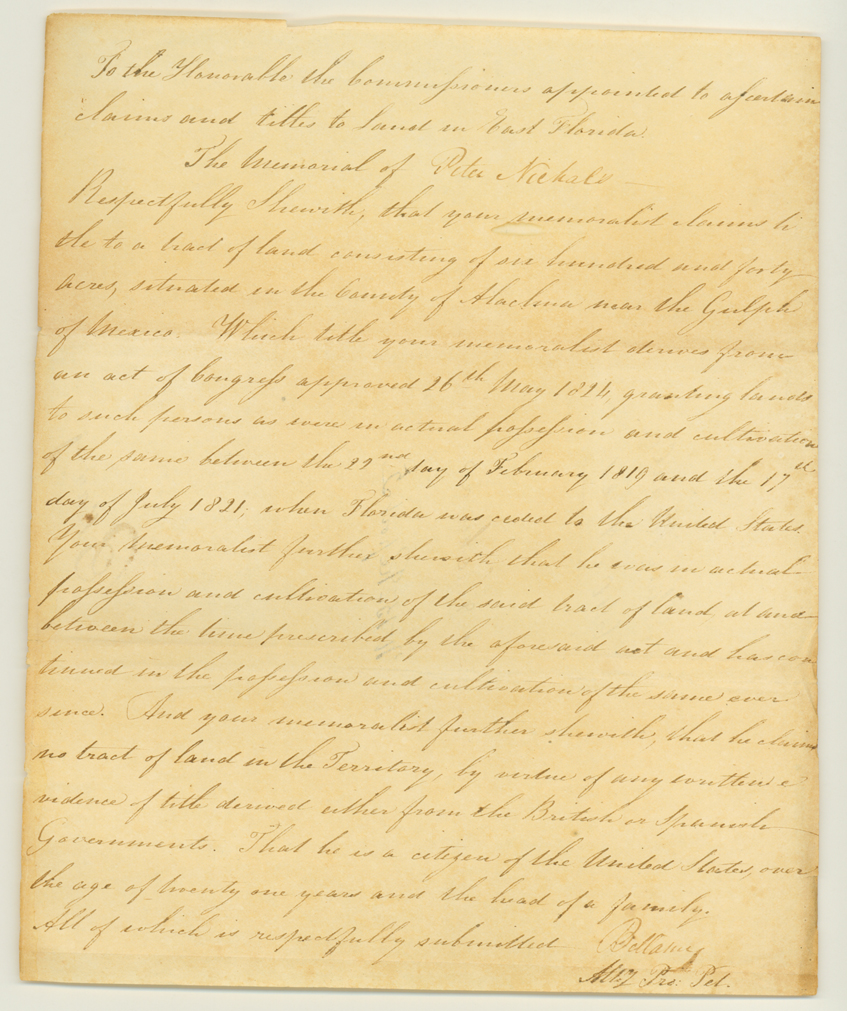 To the Honorable the Commissioners appointed to ascertain
claims and titles to land in East Florida.
The Memorial of Peter Nichals
Respectfully Sheweth, that your memoralist claims ti
tle to a tract of land consisting of six hundred and forty
acres, situated in the County of Alachua near the Gulph
of Mexico. Which title your memoralist derives from
an act of Congress approved 26th May 1824, granting lands
to such persons as were in actual possession and cultivation
of the same between the 22nd day of February 1819 and the 17th
day of July 1821, when Florida was ceded to the United States.
Your memoralist further sheweth that he was in actual
possession and cultivation of the said tract of land at and
between the time prescribed by the aforesaid act and has con
tinued in the possession and cultivation of the same ever
since. And your memoralist further sheweth, that he claims
no tract of land in the Territory, by virtue of any written e
vidence of title derived either from the British or Spanish
Governments. That he is a citizen of the United States, over
the age of twenty one years and the head of a family.
All of which is respectfully submitted Bellamy
Atty Pro: Pet.